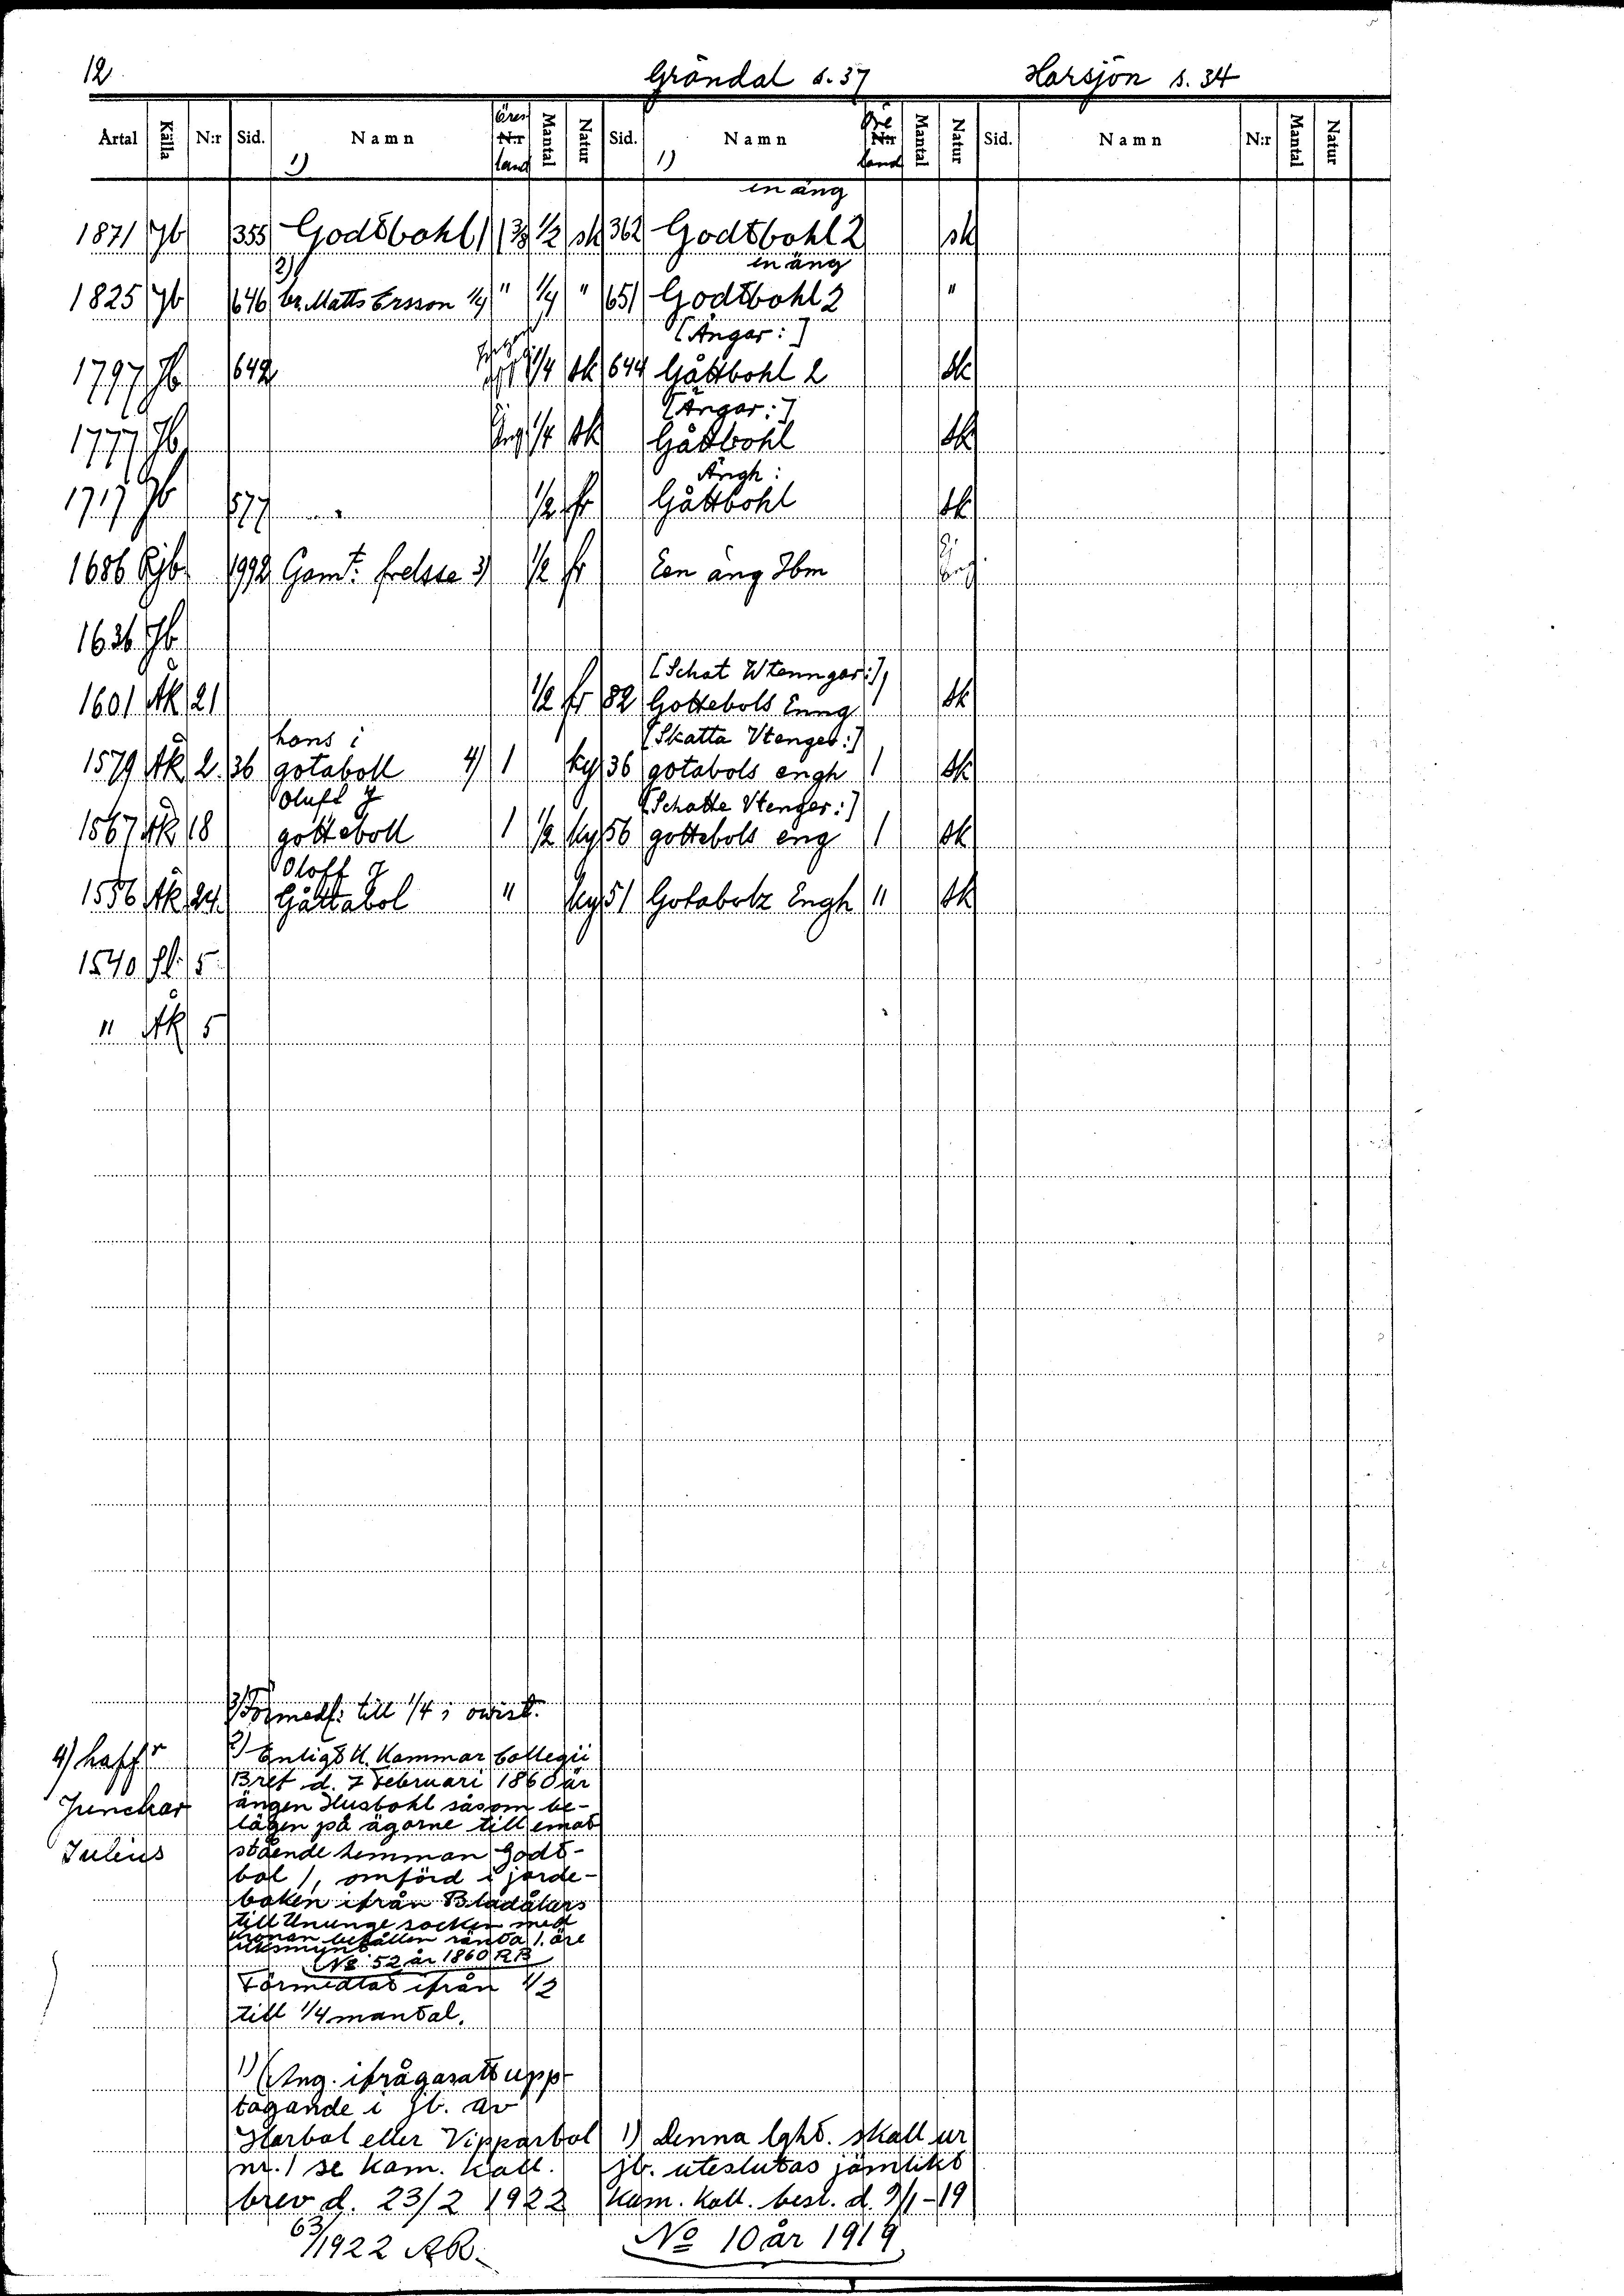 12 Gröndal s. 37 Harsjön s. 34
Årtal Källa N:r Sid. Namn 1) Öres N:r land Mantal Natur Sid. Namn 1) Öre N:r land Mantal Natur Sid. Namn N:r Mantal Natur
en äng
1871 Jb 355 Godtbohl 1 1/2 sk 362 Godtbohl 2 sk
2) en äng
1825 Jb 646 br. Matts Ersson 1/4 " 1/4 " 651 Godtbohl 2 "
[Ängar:]
1797 Jb 642 1/4 sk 644 Gåttbohl 2 sk
[Ängar:]
1777 Jb 1/4 sk Gåttbohl sk
Ängh:
1717 Jb 577 1/2 fr Gåttbohl sk
1686 Rjb 1992 Gamt: frelsse 3) 1/2 fr Een äng Ibm
1636 Jb
[Schat Wtenngar:]
1601 Åk 21 1/2 fr 82 Gottebols Enng 1 sk
hans i [Skatta Vtenger:]
1579 Åk 2. 36 gotaboll 4) 1 ky 36 gotabols engh 1 sk
Oluff J [Schatte Vtenger:]
1567 Åk 18 gotteboll 1 1/2 ky 56 gottebols eng 1 sk
Oloff J
1556 Åk 24. Gåttabol " ky 51 Gotabolz Engh " sk
1540 Sl. 5
" Åk 5
3) Förmedl: till 1/4; owist.
4) haffr
Junckar
Julius
2) Enligt K. Kammar Collegii
Bref d. 7 Februari 1860 är
ängen Husbohl såsom be-
lägen på ägorne till emot
stående hemman Godt-
bol 1, omförd i jorde-
boken ifrån Bladåkers
till Ununge socken med
kronan behållen ränta 1. öre
riksmynt
No 52 år 1860 RB
Förmedlat ifrån 1/2
till 1/4 mantal.
1) (Ang. ifrågasatt upp-
tagande i jb. av
Harbol eller Vipparbol
nr. 1 se Kam. Koll.
brev d. 23/2 1922
63/1922 AR.
1) Denna lght. skall ur
jb. uteslutas jämlikt
Kam. Koll. besl. d. 9/1-19
No 10 år 1919